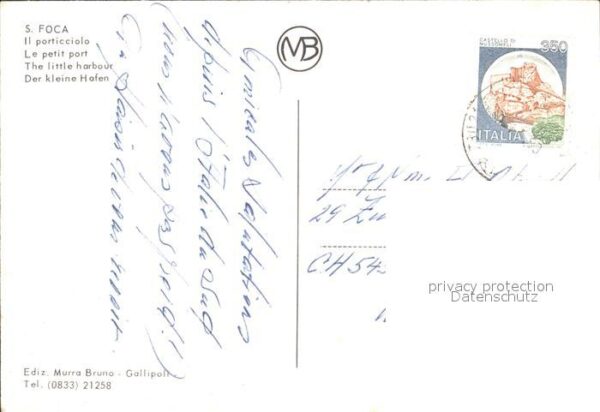 S. FOCA
Il porticciolo
Le petit port
The little harbour
Der kleine Hafen
MB
CASTELLO DI
MUSSOMELI
350
ITALIA
Amicales salutations
depuis l'Italie du Sud
(nous n'avons pas froid!)
plaisir de vous revoir.
29
CH 543
privacy protection
Datenschutz
Ediz. Murra Bruno - Gallipoli
Tel. (0833) 21258